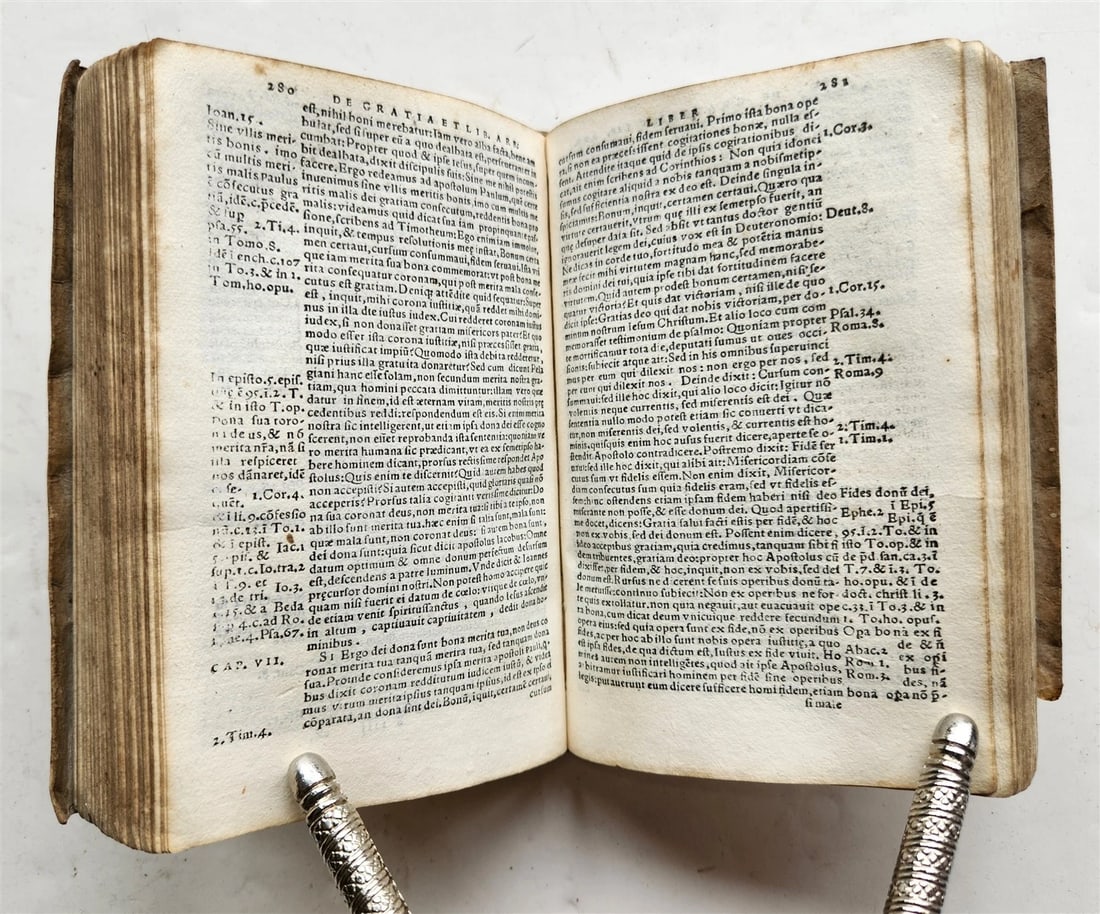 280
DE GRATIA ET LIB. ARBI
Ioan.15.
Sine vllis meri-
tis bonis. imo
cũ multis meri-
tis malis Paulus
ẽ cõsecutus gra
idẽ.c.p̄cedẽ.
& sup 2.Ti.4.
psa.55.
in Tomo.8.
idẽ ĩ ench.c.107
in To.3.& in 1.
Tom.ho.opu.
In episto.5.epis.
95.1.2.T.
& in isto T.op.
Dona sua toro-
ni deus, & nõ
merita nr̃a, nã si
illa respiceret
nos dãnaret, idẽ
1.Cor.4.
li.9.cõfessio
To.1.
& ĩ epist.
& Iac.1
sup.t.c.Io.tra.2
ĩ T.9. et Io.3.
de tri.
15.& a Beda
4.c.ad Ro.
4.Psa.67.
CAP. VII.
2.Tim.4.
est, nihil boni merebatur: Iam vero alba facta, bene am
bulat, sed si super eũ a quo dealbata est, perseueranter in
cumbat: Propter quod & ipse Iesus, super quem incum-
bit dealbata, dixit discipulis suis: Sine me nihil potestis
facere. Ergo redeamus ad apostolum Paulum, quẽ certe
inuenimus sine vllis meritis bonis, imo cum multis me
ritis malis dei gratiam consecutum, reddentis bona pro
malis: videamus quid dicat sua iam propinquante pas-
sione, scribens ad Timotheum: Ego enim iam immolor,
inquit, & tempus resolutionis meę instat, Bonum certa
men certaui, cursum consummaui, fidem seruaui. Ista vti
que iam merita sua bona commemorat: vt post bona me
rita consequatur coronam, qui post merita mala conse-
cutus est gratiam. Deniq attẽdite quid sequatur: Super
est, inquit, mihi corona iustitię, quã reddet mihi domi-
nus in illa die iustus iudex. Cui redderet coronam iustus
iudex, si non donasset gratiam misericors pater? Et quo
modo esset ista corona iustitię, nisi pręcessisset gratia,
quæ iustificat impiũ? Quomodo ista debita redderetur,
nisi prius illa gratuita donaretur? Sed cum dicunt Pela
giani hanc esse solam, non secundum merita nostra gra-
tiam, qua homini peccata dimittuntur: illam vero quæ
datur in finem, id est æternam vitam, meritis nostris prę
cedentibus reddi: respondendum est eis. Si enim merita
nostra sic intelligerent, vt etiam ipsa dona dei esse cogno
scerent, non eưet reprobanda ista sententia: quoniam ve
ro merita humana sic prædicant, vt ea ex semetipso ha-
bere hominem dicant, prorsus rectissime respondet Apo
stolus: Quis enim te discernit? Quid autem habes quod
non accepisti? Si autem accepisti, quid gloriaris quasi nõ
acceperis? Prorsus talia cogitanti verissime dicitur: Do
na sua coronat deus, non merita tua: si tibi a teipso, non
ab illo sunt merita tua. hæc enim si talia sunt, mala sunt:
quæ mala sunt, non coronat deus: si autem bona sunt,
dei dona sunt: quia sicut dicit apostolus Iacobus: Omne
datum optimum & omne donum perfectum desursum
est, descendens a patre luminum. Vnde dicit & Ioannes
pręcursor domini nostri. Non potest homo accipere quic
quam nisi fuerit ei datum de cœlo: vtique de cœlo, vn-
de etiam venit spiritussanctus, quando Iesus ascendit
in altum, captiuauit captiuitatem, dedit dona ho-
minibus.
SI Ergo dei dona sunt bona merita tua, non deus co
ronat merita tua tanquã merita tua, sed tanquam dona
sua. Proinde consideremus ipsa merita apostoli Pauli, q̃
bus dixit coronam redditurum iudicem iustũ, & videa
mus vtrum merita ipsius tanquam ipsius, id est ex ipso ei
cõparata, an dona sint dei. Bonũ, iquit, certamẽ certaui,
cursum
LIBER
281
cursum consumaui, fidem seruaui. Primo ista bona ope
ra, si non ea præcessissent cogitationes bonæ, nulla es-
sent. Attendite itaque quid de ipsis cogitationibus di-
cat, ait enim scribens ad Corinthios: Non quia idonei
sumus cogitare aliquid a nobis tanquam a nobismetip-
sis, sed sufficientia nostra ex deo est. Deinde singula in-
spiciamus: Bonum, inquit, certamen certaui. Quæro qua
virtute certauerit, vtrum que illi ex semetpso fuerit, an
quę desuper data sit. Sed absit vt tantus doctor gentiũ
ignorauerit legem dei, cuius vox est in Deuteronomio:
Ne dicas in corde tuo, fortitudo mea & potẽtia manus
meæ fecit mihi virtutem magnam hanc, sed memorabe-
ris domini dei tui, quia ipse tibi dat fortitudinem facere
virtutem. Quid autem prodest bonum certamen, nisi se-
quatur victoria? Et quis dat victoriam, nisi ille de quo
dicit ipse: Gratias deo qui dat nobis victoriam, per do-
minum nostrum Iesum Christum. Et alio loco cum com
memorasset testimonium de psalmo: Quoniam propter
te mortificamur tota die, deputati sumus vt oues occi-
sionis: subiecit atque ait: Sed in his omnibus superuinci
mus per eum qui dilexit nos: non ergo per nos, sed
per eum qui dilexit nos. Deinde dixit: Cursum con-
summaui: sed ille hoc dixit, qui alio loco dicit: Igitur nõ
volentis neque currentis, sed miserentis est dei. Quæ
sententia nullo modo potest etiam sic conuerti vt dica-
tur, non miserentis dei, sed volentis, & currentis est ho-
minis. quisquis enim hoc ausus fuerit dicere, aperte se o-
stendit Apostolo contradicere. Postremo dixit: Fidẽ ser
uaui: sed ille hoc dixit, qui alibi ait: Misericordiam cõse
cutus sum vt fidelis essem. Non enim dixit, Misericor-
diam consecutus sum quia fidelis eram, sed vt fidelis es-
sem: hinc ostendens etiam ipsam fidem haberi nisi deo
miserante non posse, & esse donum dei. Quod apertissi-
me docet, dicens: Gratia salui facti estis per fidẽ, & hoc
non ex vobis, sed dei donum est. Possent enim dicere,
ideo accepibus gratiam, quia credimus, tanquam sibi fi
dem tribuentes, gratiam deo: propter hoc Apostolus cũ
dixisset, per fidem, & hoc, inquit, non ex vobis, sed dei
donum est. Rursus ne dicerent se suis operibus donũ ta-
le metuisse: continuo subiecit: Non ex operibus ne for-
te quis extollatur. non quia negauit, aut euacuauit ope
ra bona, cum dicat deum vnicuique reddere secundum
opera eius: sed quia opera sunt ex fide, nõ ex operibus
fides, ac per hoc ab illo sunt nobis opera iustitię, a quo
est ipsa fides, de qua dictum est, Iustus ex fide viuit. Ho
mines autem non intelligẽtes, quod ait ipse Apostolus,
arbitramur iustificari hominem per fidẽ sine operibus
legis: putauerunt eum dicere sufficere homi fidem, etiam
si male
1.Cor.3.
Deut.8.
1.Cor.15.
Psal.34.
Roma.8.
2.Tim.4.
Roma.9
2.Tim.4.
1.Tim.1.
Fides donũ dei,
Ephe.2 ĩ Epi.5
Epi.q̃ ẽ
95.1.2.To.& in
isto To.op.& in
de p̄d san.ca.3.ĩ
T.7.& i.3. To.
ho.opu.& ĩ de
doct. christ li.3.
c.33.ĩ To.3.& in
1. To.ho. opus.
Opa bona ex fi
Abac.2 de & ñ
Rom.1. ex opi
Rom.3. bus fi-
des, nã
bona opa nõ p̄-